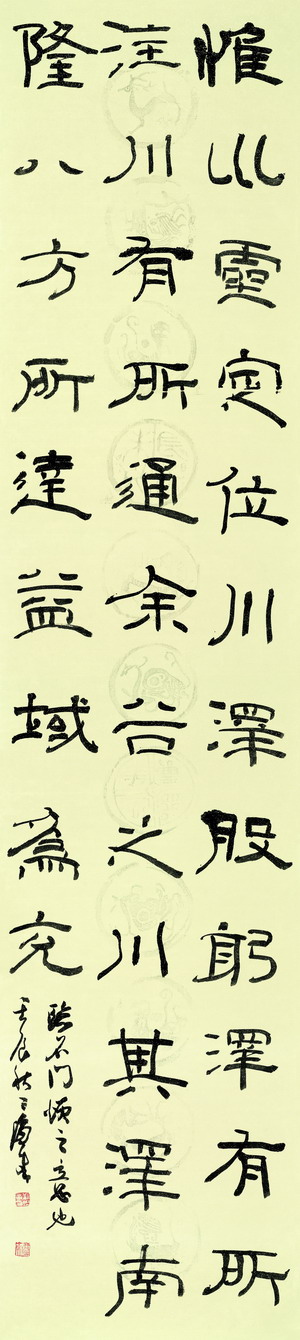 惟巛靈定位川澤股躬澤有所
注川有所通余谷之川其澤南
隆八方所達益域爲充
臨石門頌之也
壬辰秋